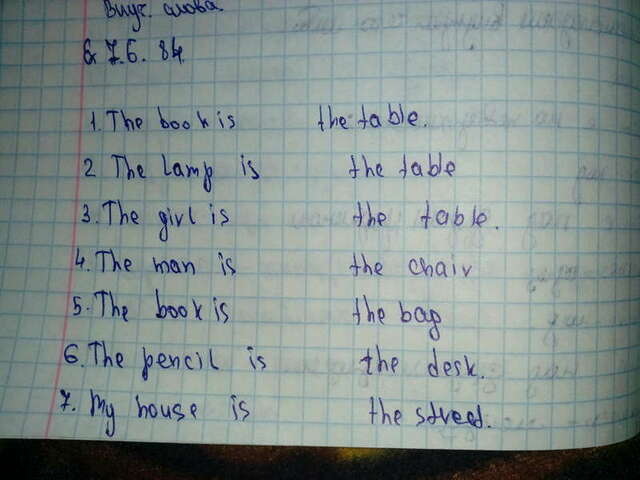 Вауч. слова.
7.6. 84.
1. The book is the table.
2 The lamp is the table
3. The girl is the table.
4. The man is the chair
5. The book is the bag
6. The pencil is the desk.
7. My house is the street.